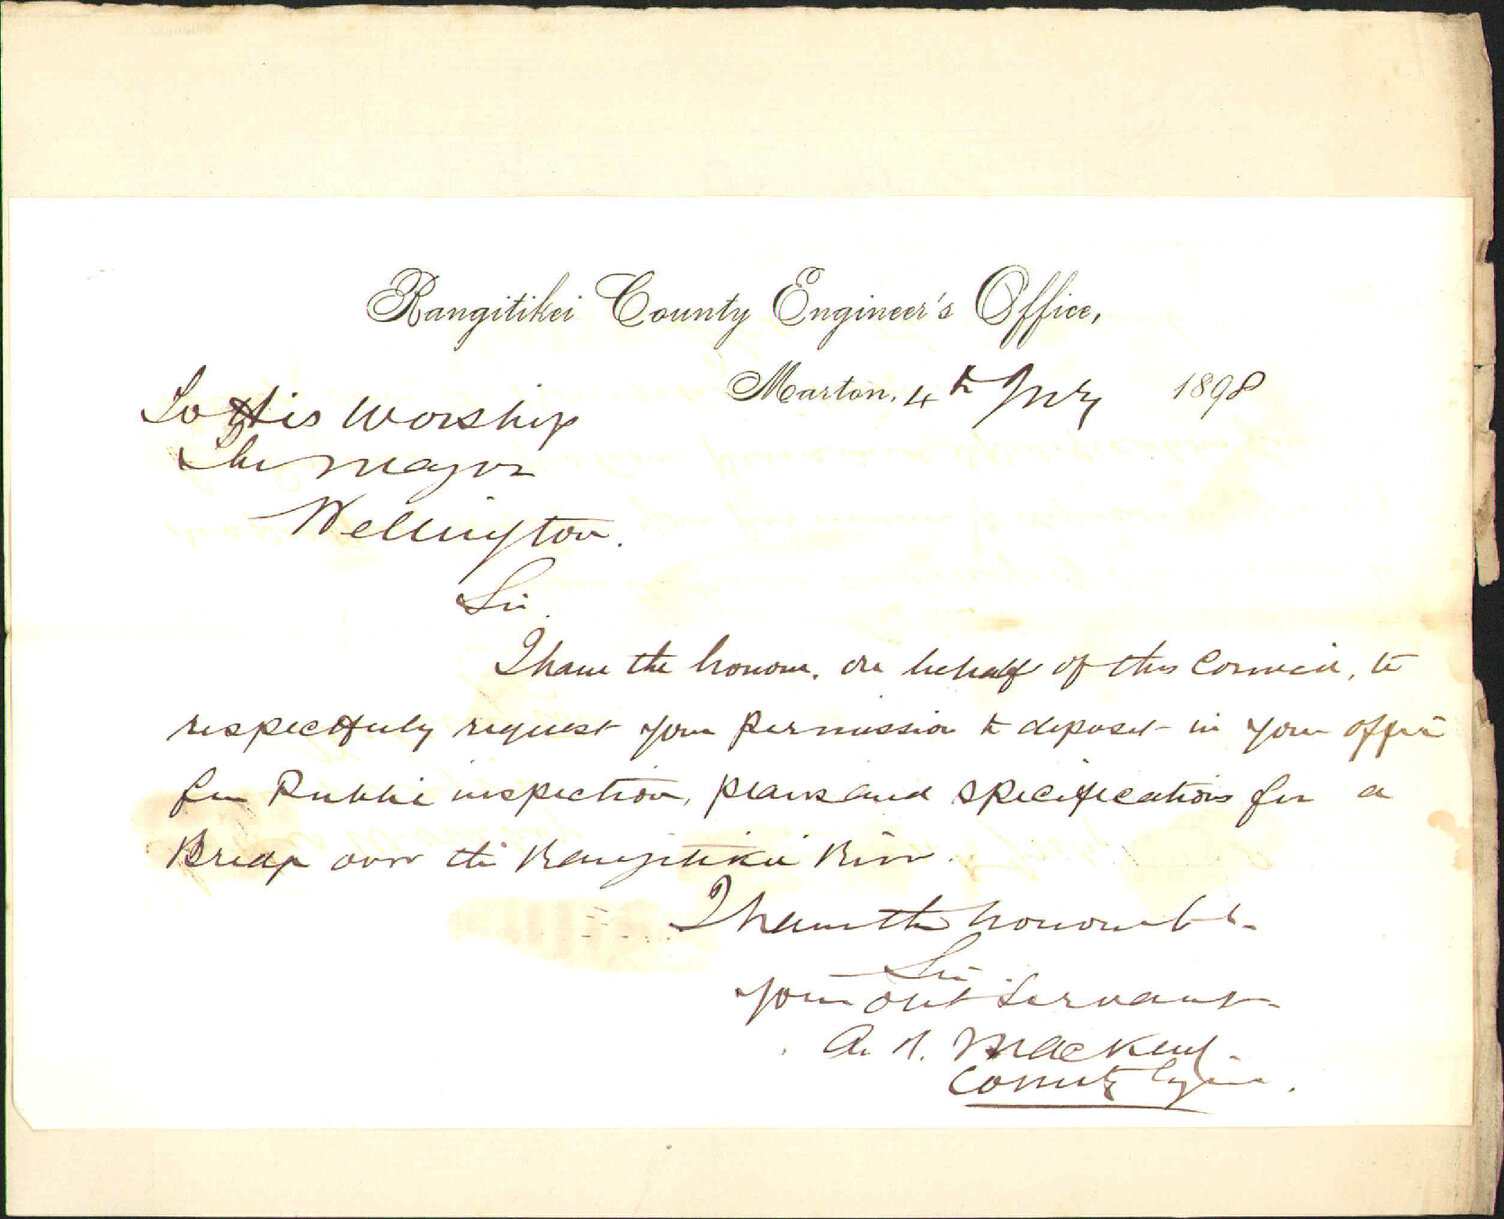 Rangitikei County Engineer's Office,
Marton, 4th July 1898
To His Worship
The Mayor
Wellington.
Sir
I have the honour, on behalf of this Council, to
respectfully request your permission to deposit in your office
for Public inspection, plans and specifications for a
Bridge over the Rangitikei River.
I have the honour to be
Sir
your obt servant
County Engineer.